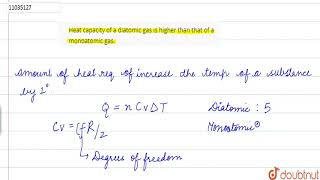 11035127
Heat capacity of a diatomic gas is higher than that of a
monoatomic gas.
Amount of heat req. of increase the temp. of a substance
by 1°
Q = n Cv ΔT
Diatomic : 5
Cv = fR/2
Monoatomic
Degrees of freedom
doubtnut